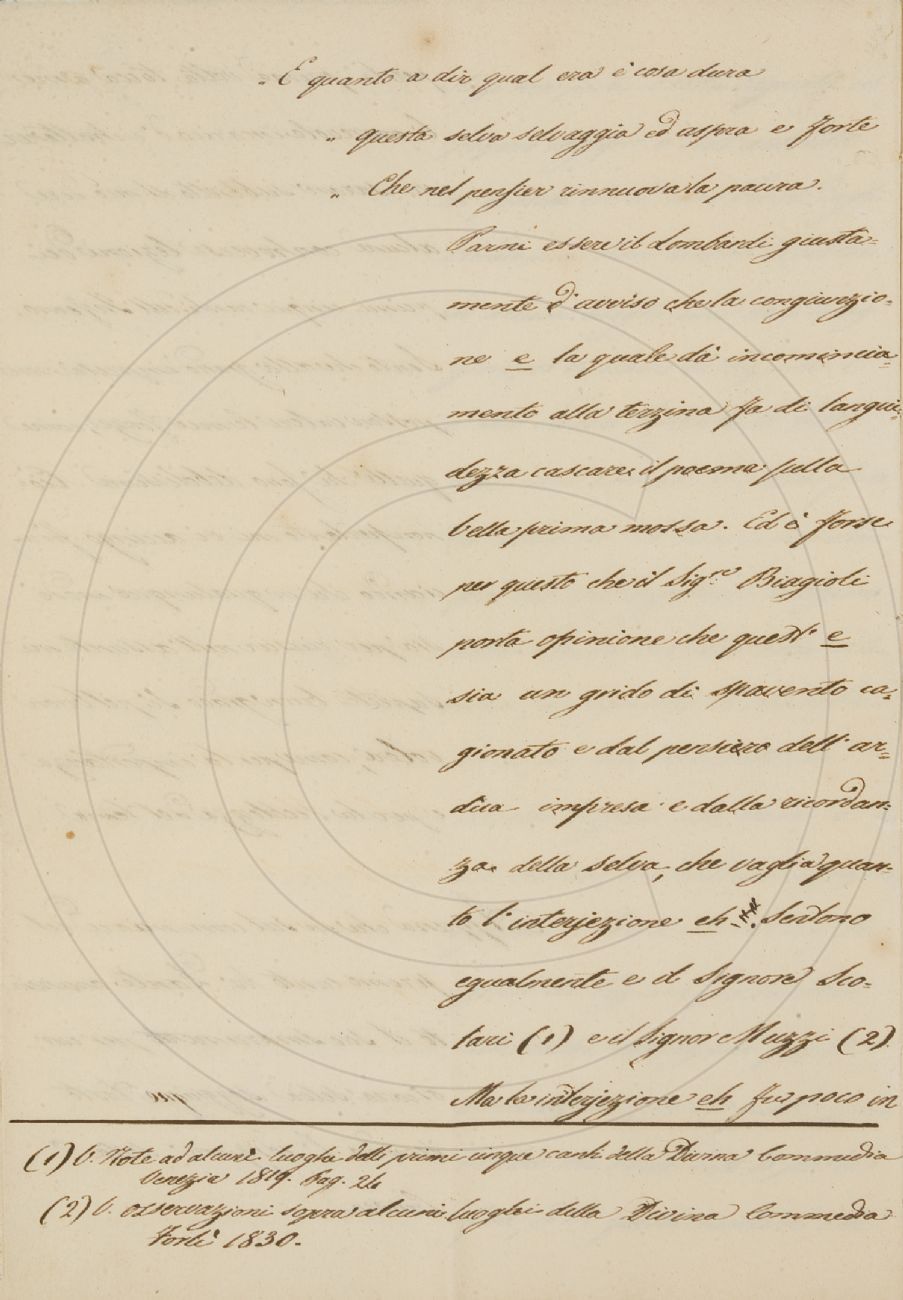 „ E quanto a dir qual era è cosa dura
„ questa selva selvaggia ed aspra e forte
„ Che nel pensier rinnuova la paura.
Parmi essere il Lombardi giusta=
mente d'avviso che la congiunzio=
ne e la quale dà incomincia=
mento alla terzina fa di langui=
dezza cascare il poema sulla
bella prima mossa. Ed è forse
per questo che il Sigre Biagioli
porta opinione che quest' e
sia un grido di spavento ca=
gionato e dal pensiero dell' ar=
dua impresa e dalla ricordan=
za della selva, che vaglia quan=
to l'interjezione eh!. Sentono
egualmente e il Signore Sco=
lari (1) e il Signor Muzzi (2).
Ma la interjezione eh fu poco in
(1) V. Note ad alcuni luoghi delli primi cinque canti della Divina Commedia
Venezia 1819. Pag. 24
(2) V. osservazioni sopra alcuni luoghi della Divina Commedia
Forlì 1830.